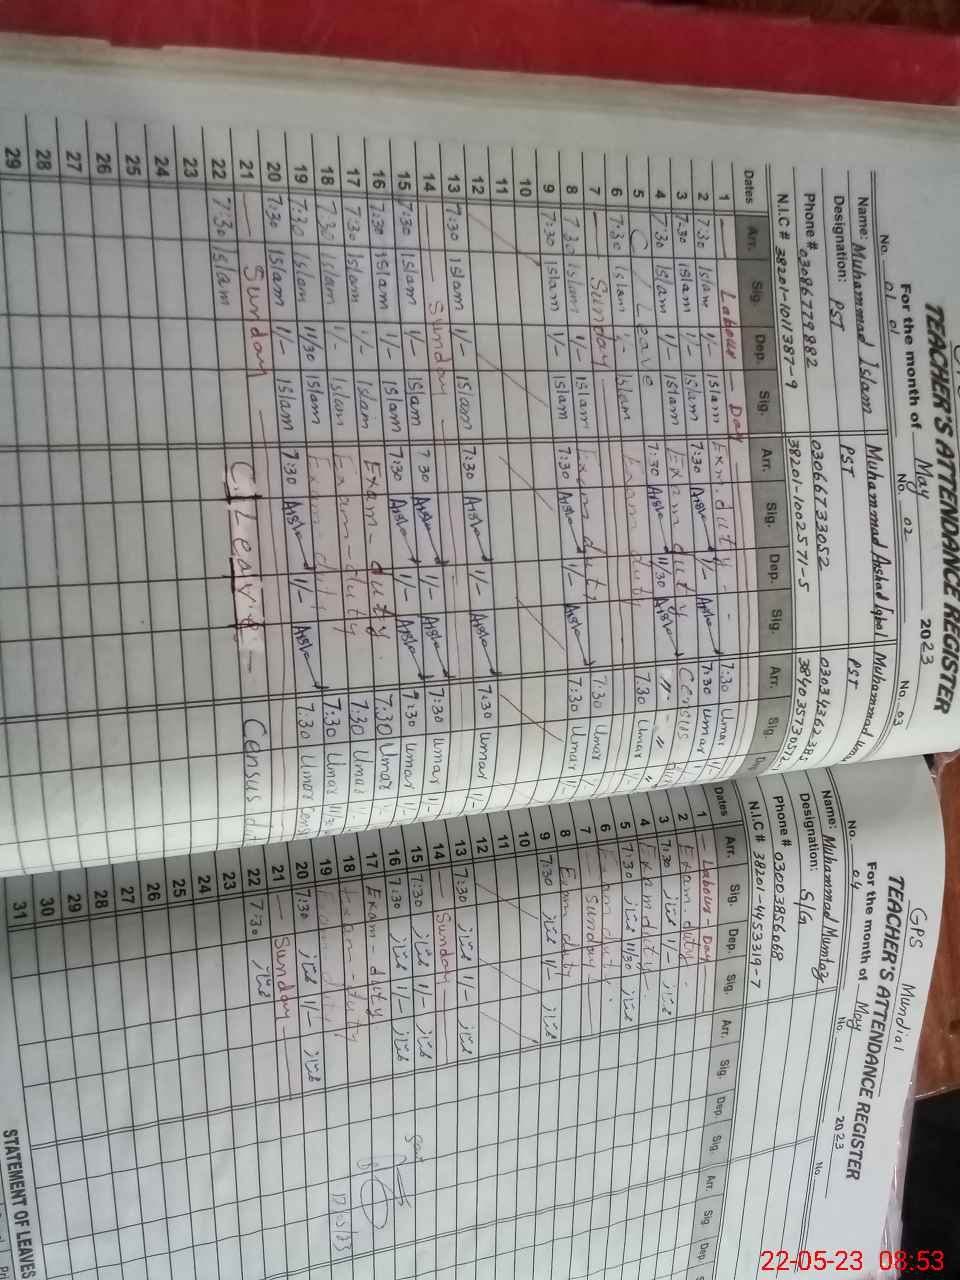 TEACHER'S ATTENDANCE REGISTER
For the month of May 2023
No. 01 No. 02 No. 03
Name: Muhammad Islam Muhammad Arshad Iqbal Muhammad Umar
Designation: PST PST PST
Phone # 03086779882 03066733052 03034362385
N.I.C # 38201-1011387-9 38201-1002571-5
Dates Arr. Sig. Dep. Sig. Arr. Sig. Dep. Sig. Arr. Sig.
1 Labour Day
2 7:30 Islam 1/- Islam Exm. duty 7:30 Umar 1/-
3 7:30 Islam 1/- Islam 7:30 Arsh 1/- Arsh 7:30 Umar 1/-
4 7:30 Islam 1/- Islam Exam duty Census
5 C/Leave 7:30 Arsh 11/30 Arsh
6 7:30 Islam 1/- Islam Exam duty 7:30 Umar
7 Sunday
8 7:30 Islam 1/- Islam Exam duty 7:30 Umar
9 7:30 Islam 1/- Islam 7:30 Arsh 1/- Arsh 7:30 Umar 1/-
10
11
12
13 7:30 Islam 1/- Islam 7:30 Arsh 1/- Arsh 7:30 Umar 1/-
14 Sunday
15 7:30 Islam 1/- Islam 7:30 Arsh 1/- Arsh 7:30 Umar 1/-
16 7:30 Islam 1/- Islam 7:30 Arsh 1/- Arsh 7:30 Umar 1/-
17 7:30 Islam 1/- Islam Exam-duty 7:30 Umar
18 7:30 Islam 1/- Islam Exam-duty 7:30 Umar
19 7:30 Islam 11/30 Islam Exam duty 7:30 Umar 11/30
20 7:30 Islam 1/- Islam 7:30 Arsh 1/- Arsh 7:30 Umar
21 Sunday
22 7:30 Islam C/Leave Census
23
24
25
26
27
28
29
GPS Mundial
TEACHER'S ATTENDANCE REGISTER
For the month of May 2023
No. 04 No. No.
Name: Muhammad Mumtaz
Designation: S/G
Phone # 03003856068
N.I.C # 38201-4453319-7
Dates Arr. Sig. Dep. Sig. Arr. Sig. Dep. Sig. Arr. Sig. Dep
1 Labour-Day
2 Exam duty
3 7:30 ممتاز 1/- ممتاز
4 Exam duty
5 7:30 ممتاز 11/30 ممتاز
6 Exam duty
7 Sunday
8 Exam duty
9 7:30 ممتاز ممتاز
10
11
12
13 7:30 ممتاز 1/- ممتاز
14 Sunday
15 7:30 ممتاز 1/- ممتاز
16 7:30 ممتاز 1/- ممتاز
17 Exam duty
18 Exam-duty
19 Exam duty
20 7:30 ممتاز 1/- ممتاز
21 Sunday
22 7:30 ممتاز
23
24
25
26
27
28
29
30
31
STATEMENT OF LEAVES
22-05-23 08:53